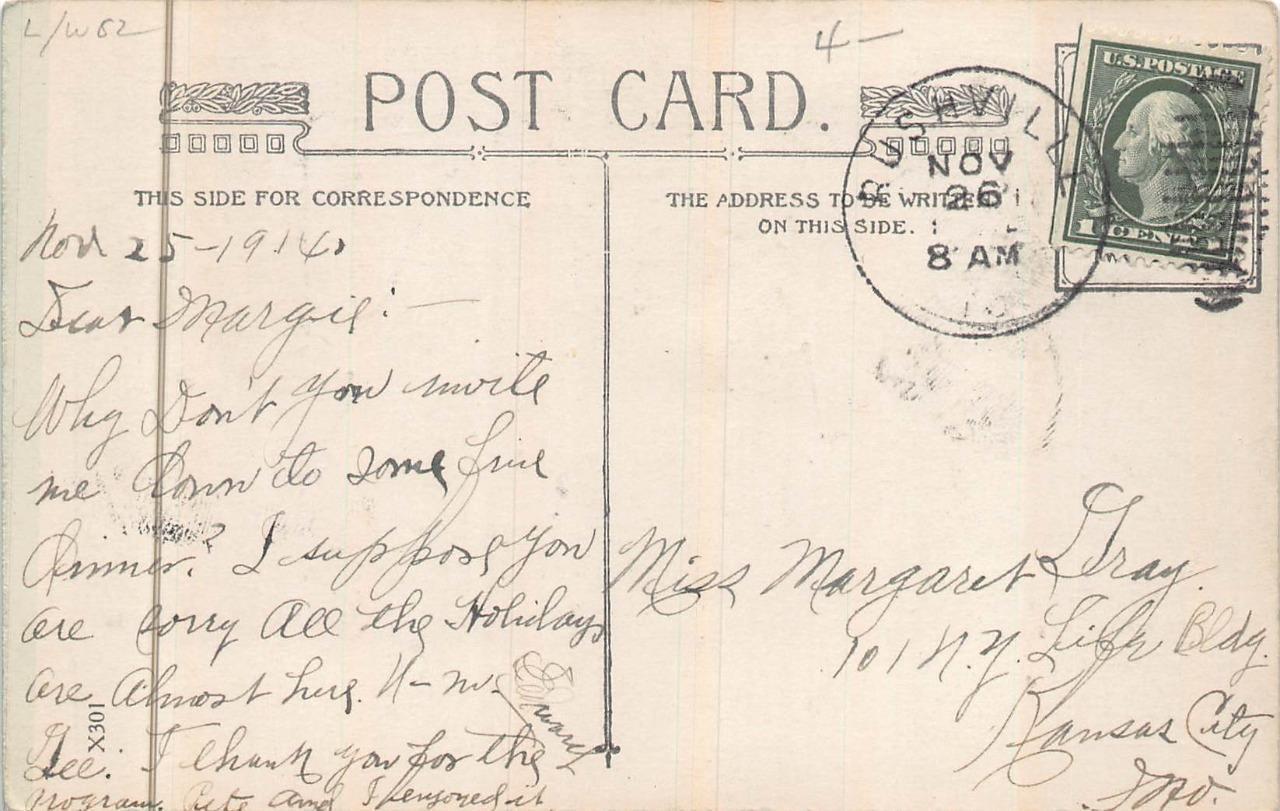 L/W82
4-
POST CARD.
THIS SIDE FOR CORRESPONDENCE
THE ADDRESS TO BE WRITTEN
ON THIS SIDE.
RUSHVILLE
NOV
26
8 AM
U.S. POSTAGE
1 CENT 1
Nov 25-1914.
Dear Margie:-
Why Don't you invite
me Down to some fine
Dinner? I suppose you
are sorry All the Holidays
are Almost here. U-m-
Gee. I thank you for the
program. Pete and I enjoyed it
Edward
X301
Miss Margaret Gray.
101 N.Y. Life Bldg.
Kansas City
Mo